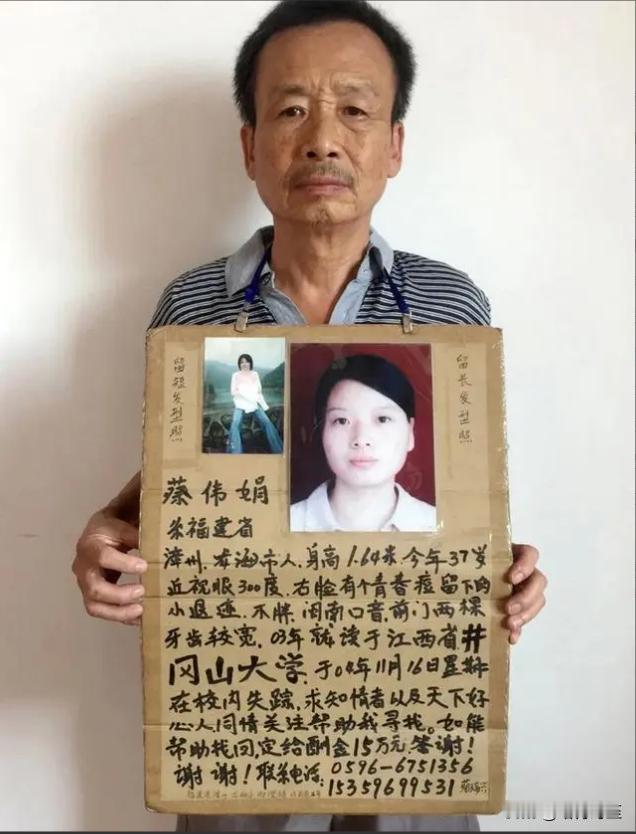 留短发型照
留长发型照
蔡伟娟
系福建省
漳州.龙海市人.身高1.64米.今年37岁
近视眼300度.右脸有个青春痘留下的
小退迹.不胖.闽南口音.前门两棵
牙齿较宽.03年就读于江西省井
冈山大学.于04年11月16日星期二
在校内失踪.求知情者以及天下好
心人同情关注帮助我寻找。如能
帮助找回定给酬金15万元答谢！
谢谢！联系电话：0596-6751356
15359699531